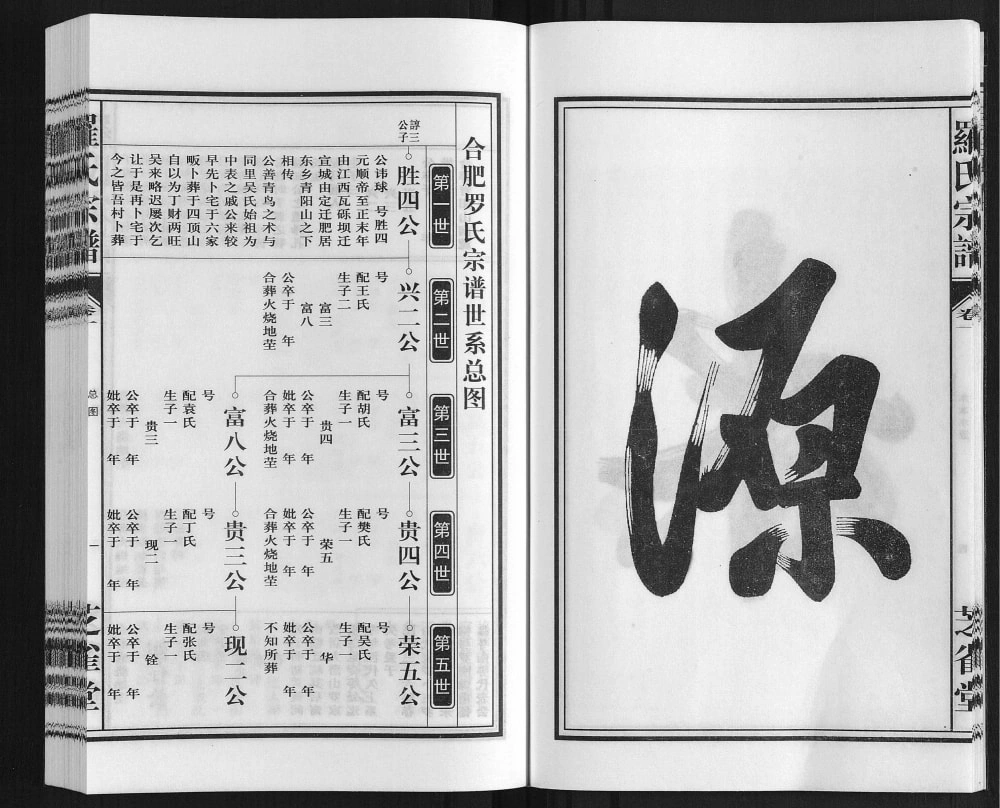 羅氏宗譜
卷一
芝雀堂
源
合肥罗氏宗谱世系总图
第一世
谆三
公子
胜四公
公讳球　号胜四
元顺帝至正末年
由江西瓦砾坝迁
宣城由定迁肥居
东乡青阳山之下
相传
公善青鸟之术与
同里吴氏始祖为
中表之戚公来较
早先卜宅于六家
畈卜葬于四顶山
自以为丁财两旺
吴来略迟屡次乞
让于是再卜宅于
今之皆吾村卜葬
第二世
兴二公
号
配王氏
生子二
富三
富八
公卒于　年
合葬火烧地茔
第三世
富三公
号
配胡氏
生子一
贵四
公卒于　年
妣卒于　年
合葬火烧地茔
富八公
号
配袁氏
生子一
贵三
公卒于　年
妣卒于　年
第四世
贵四公
号
配樊氏
生子一
荣五
公卒于　年
妣卒于　年
合葬火烧地茔
贵三公
号
配丁氏
生子一
现二
公卒于　年
妣卒于　年
第五世
荣五公
号
配吴氏
生子一
华
公卒于　年
妣卒于　年
不知所葬
现二公
号
配张氏
生子一
铨
公卒于　年
妣卒于　年
羅氏宗譜
总图
一